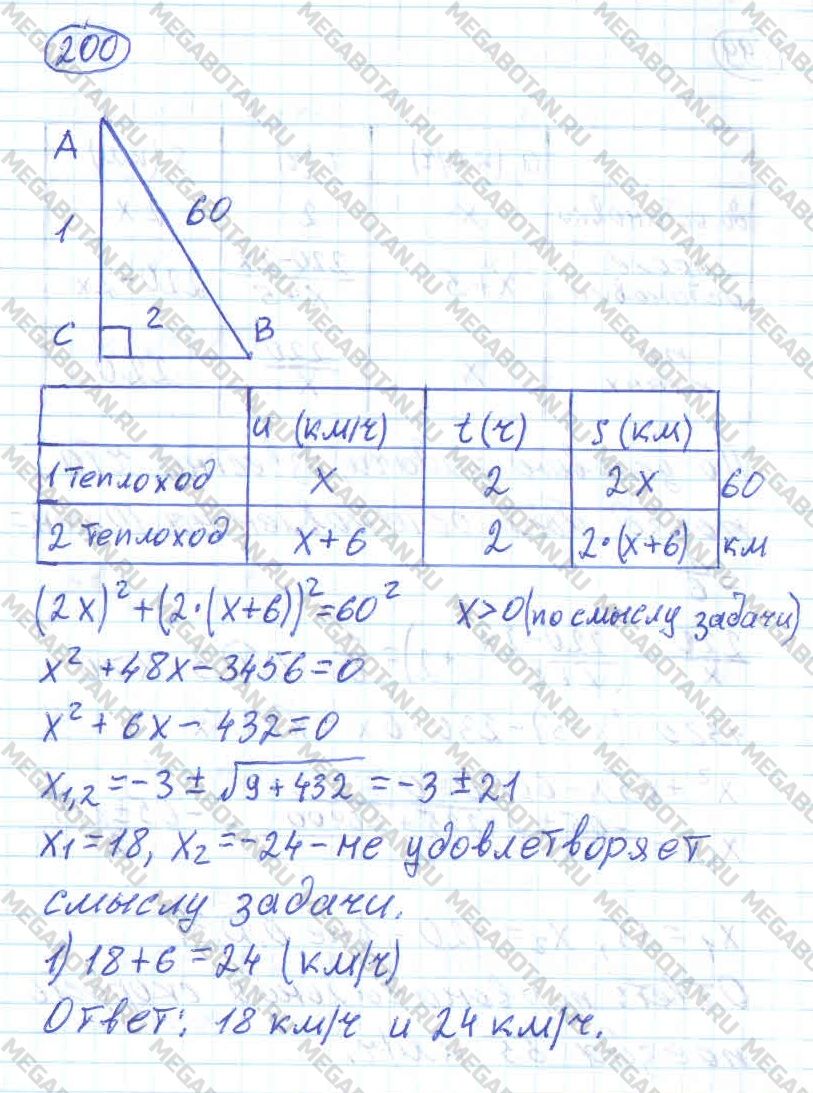 200
A
1
60
C
2
B
u (км/ч) t(ч) s(км)
1 теплоход x 2 2x 60
2 теплоход x+6 2 2·(x+6) км
(2x)²+(2·(x+6))²=60² x>0(по смыслу задачи)
x²+48x-3456=0
x²+6x-432=0
x₁,₂=-3±√9+432=-3±21
x₁=18, x₂=-24-не удовлетворяет
смыслу задачи.
1) 18+6=24 (км/ч)
Ответ: 18 км/ч и 24 км/ч.
MEGABOTAN.RU